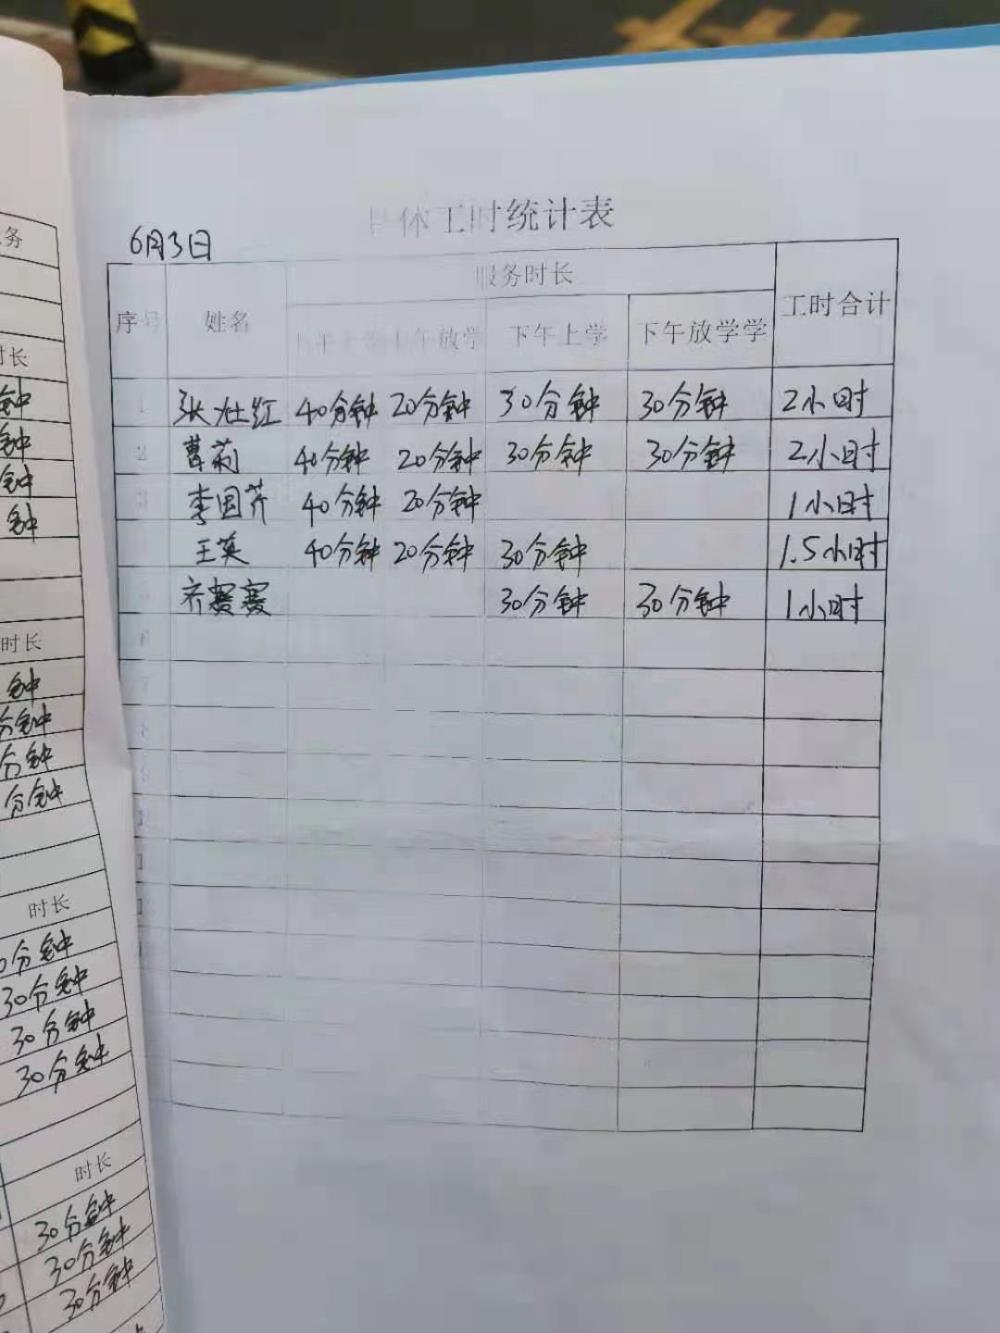 具体工时统计表
6月3日
序号 姓名 服务时长 工时合计
上午上学 上午放学 下午上学 下午放学学
1 张灶红 40分钟 20分钟 30分钟 30分钟 2小时
2 曹莉 40分钟 20分钟 30分钟 30分钟 2小时
3 李国芹 40分钟 20分钟 1小时
4 王英 40分钟 20分钟 30分钟 1.5小时
5 齐赛赛 30分钟 30分钟 1小时
6
7
务
时长
钟
钟
钟
钟
时长
钟
分钟
分钟
分钟
时长
0分钟
30分钟
30分钟
30分钟
时长
30分钟
30分钟
30分钟